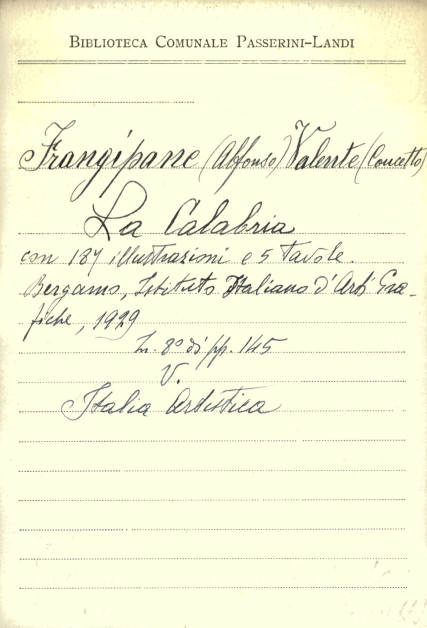 BIBLIOTECA COMUNALE PASSERINI-LANDI
Frangipane (Alfonso) Valente (Concetto)
La Calabria
con 137 illustrazioni e 5 tavole.
Bergamo, Istituto Italiano d'Arti Gra-
fiche, 1929
In. 8° di pp. 145
V.
Italia Artistica